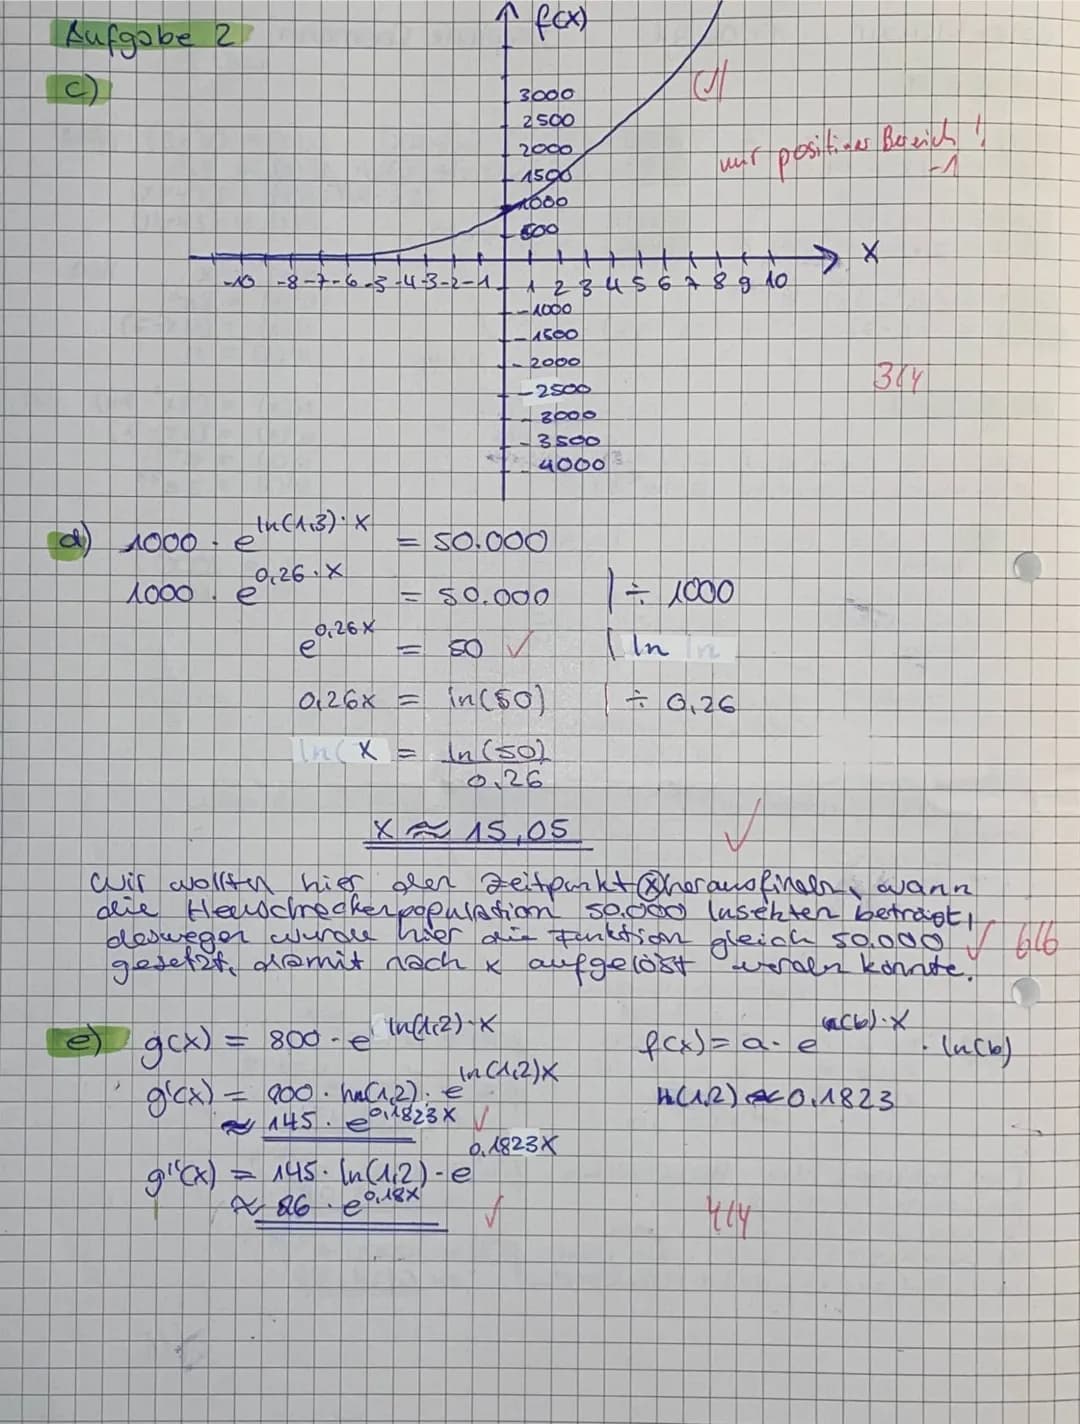 Aufgabe 2
f(x)
c)
3000
2500
2000
1500
1000
500
nur positiver Bereich!
-1
x
-10 -8 -7 -6 -5 -4 -3 -2 -1 1 2 3 4 5 6 7 8 9 10
-1000
-1500
-2000
-2500
-3000
-3500
-4000
3/4
d) 1000 · e^ln(1,3)·x = 50.000
1000 · e^0,26·x = 50.000 | ÷ 1000
e^0,26x = 50 ✓ | ln
0,26x = ln(50) | ÷ 0,26
x = ln(50)
0,26
x ≈ 15,05 ✓
Wir wollten hier den Zeitpunkt x herausfinden, wann
die Heuschreckenpopulation 50.000 Insekten beträgt,
deswegen wurde hier die Funktion gleich 50.000 ✓ 6/6
gesetzt, damit nach x aufgelöst werden konnte.
e) g(x) = 800 · e^ln(1,2)·x f(x) = a · e^ln(b)·x · ln(b)
g'(x) = 800 · ln(1,2) · e^ln(1,2)x ln(1,2) ≈ 0,1823
≈ 145 · e^0,1823x ✓
g''(x) = 145 · ln(1,2) · e^0,1823x
≈ 26 · e^0,18x ✓ 4/4